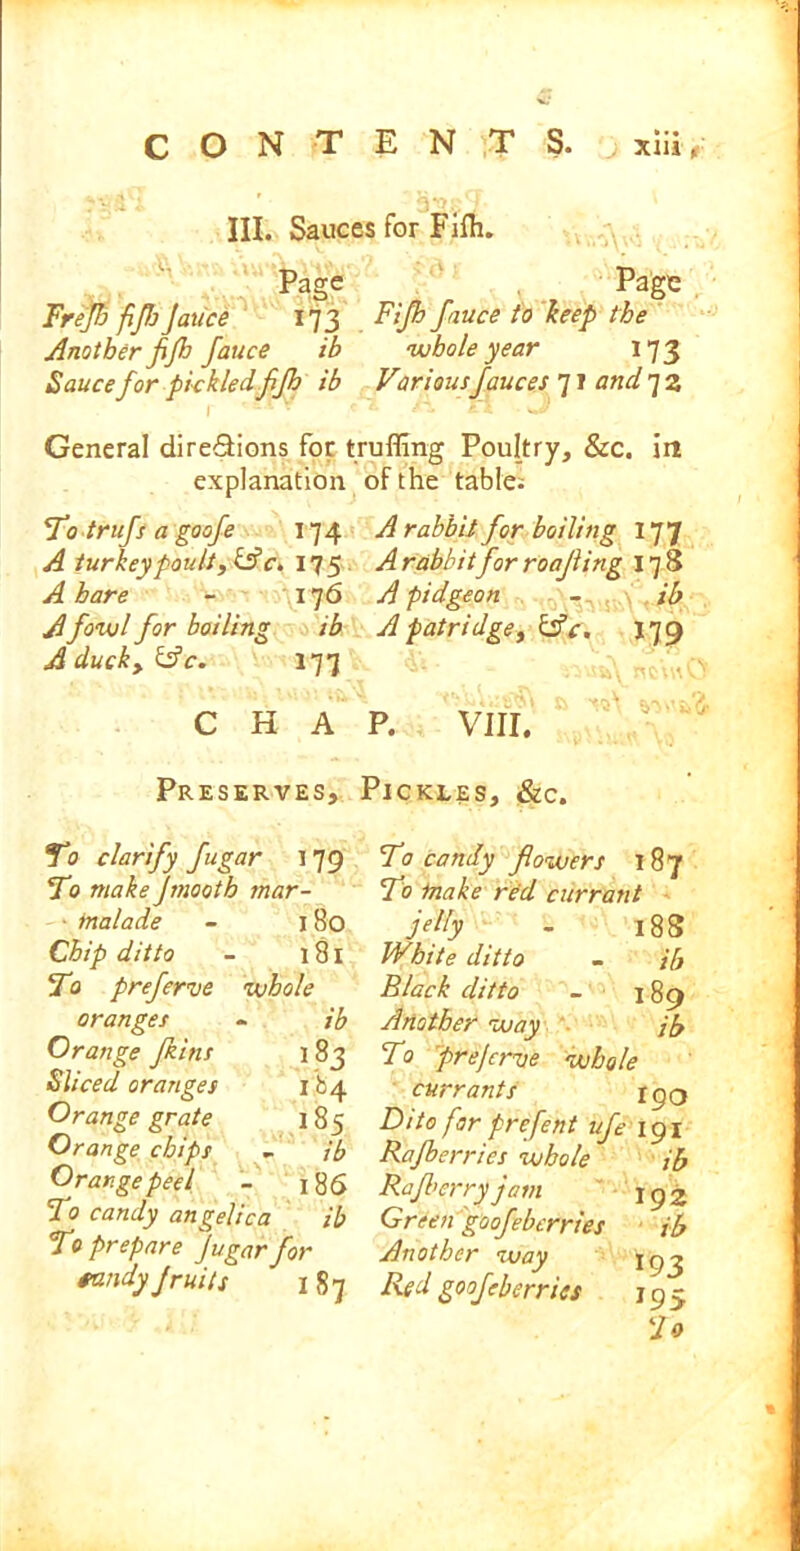 CONTENTS. xiii
III. Sauces for Fiſh.
Page
Freſh fiſh ſauce 173
Another fiſh ſauce ib
Sauce for pickled fiſh ib
Page
Fiſh ſauce to keep the
whole year 173
Various ſauces 71 and 72
General directions for truſſing Poultry, &c. in
explanation of the table.
To truſs a gooſe 174
A turkey poult, &c. 175
A hare - 176
A fowl for boiling ib
A duck, &c. 177
A rabbit for boiling 177
A rabbit for roaſting 178
A pidgeon - ib
A patridge, &c. 179
CHAP. VIII.
PRESERVES, PICKLES, &c.
To clarify ſugar 179
To make ſmooth mar-
malade - 180
Chip ditto - 181
To preſerve whole
oranges - ib
Orange ſkins 183
Sliced oranges 184
Orange grate 185
Orange chips - ib
Orange peel - 186
To candy angelica ib
To prepare ſugar for
candy fruits 187
To candy flowers 187
To make red currant
jelly - 188
White ditto - ib
Black ditto - 189
Another way ib
To preſerve whole
currants 190
Dito for preſent uſe 191
Raſberries whole ib
Raſberry jam 192
Green gooſeberries ib
Another way 193
Red gooſeberries 195
To